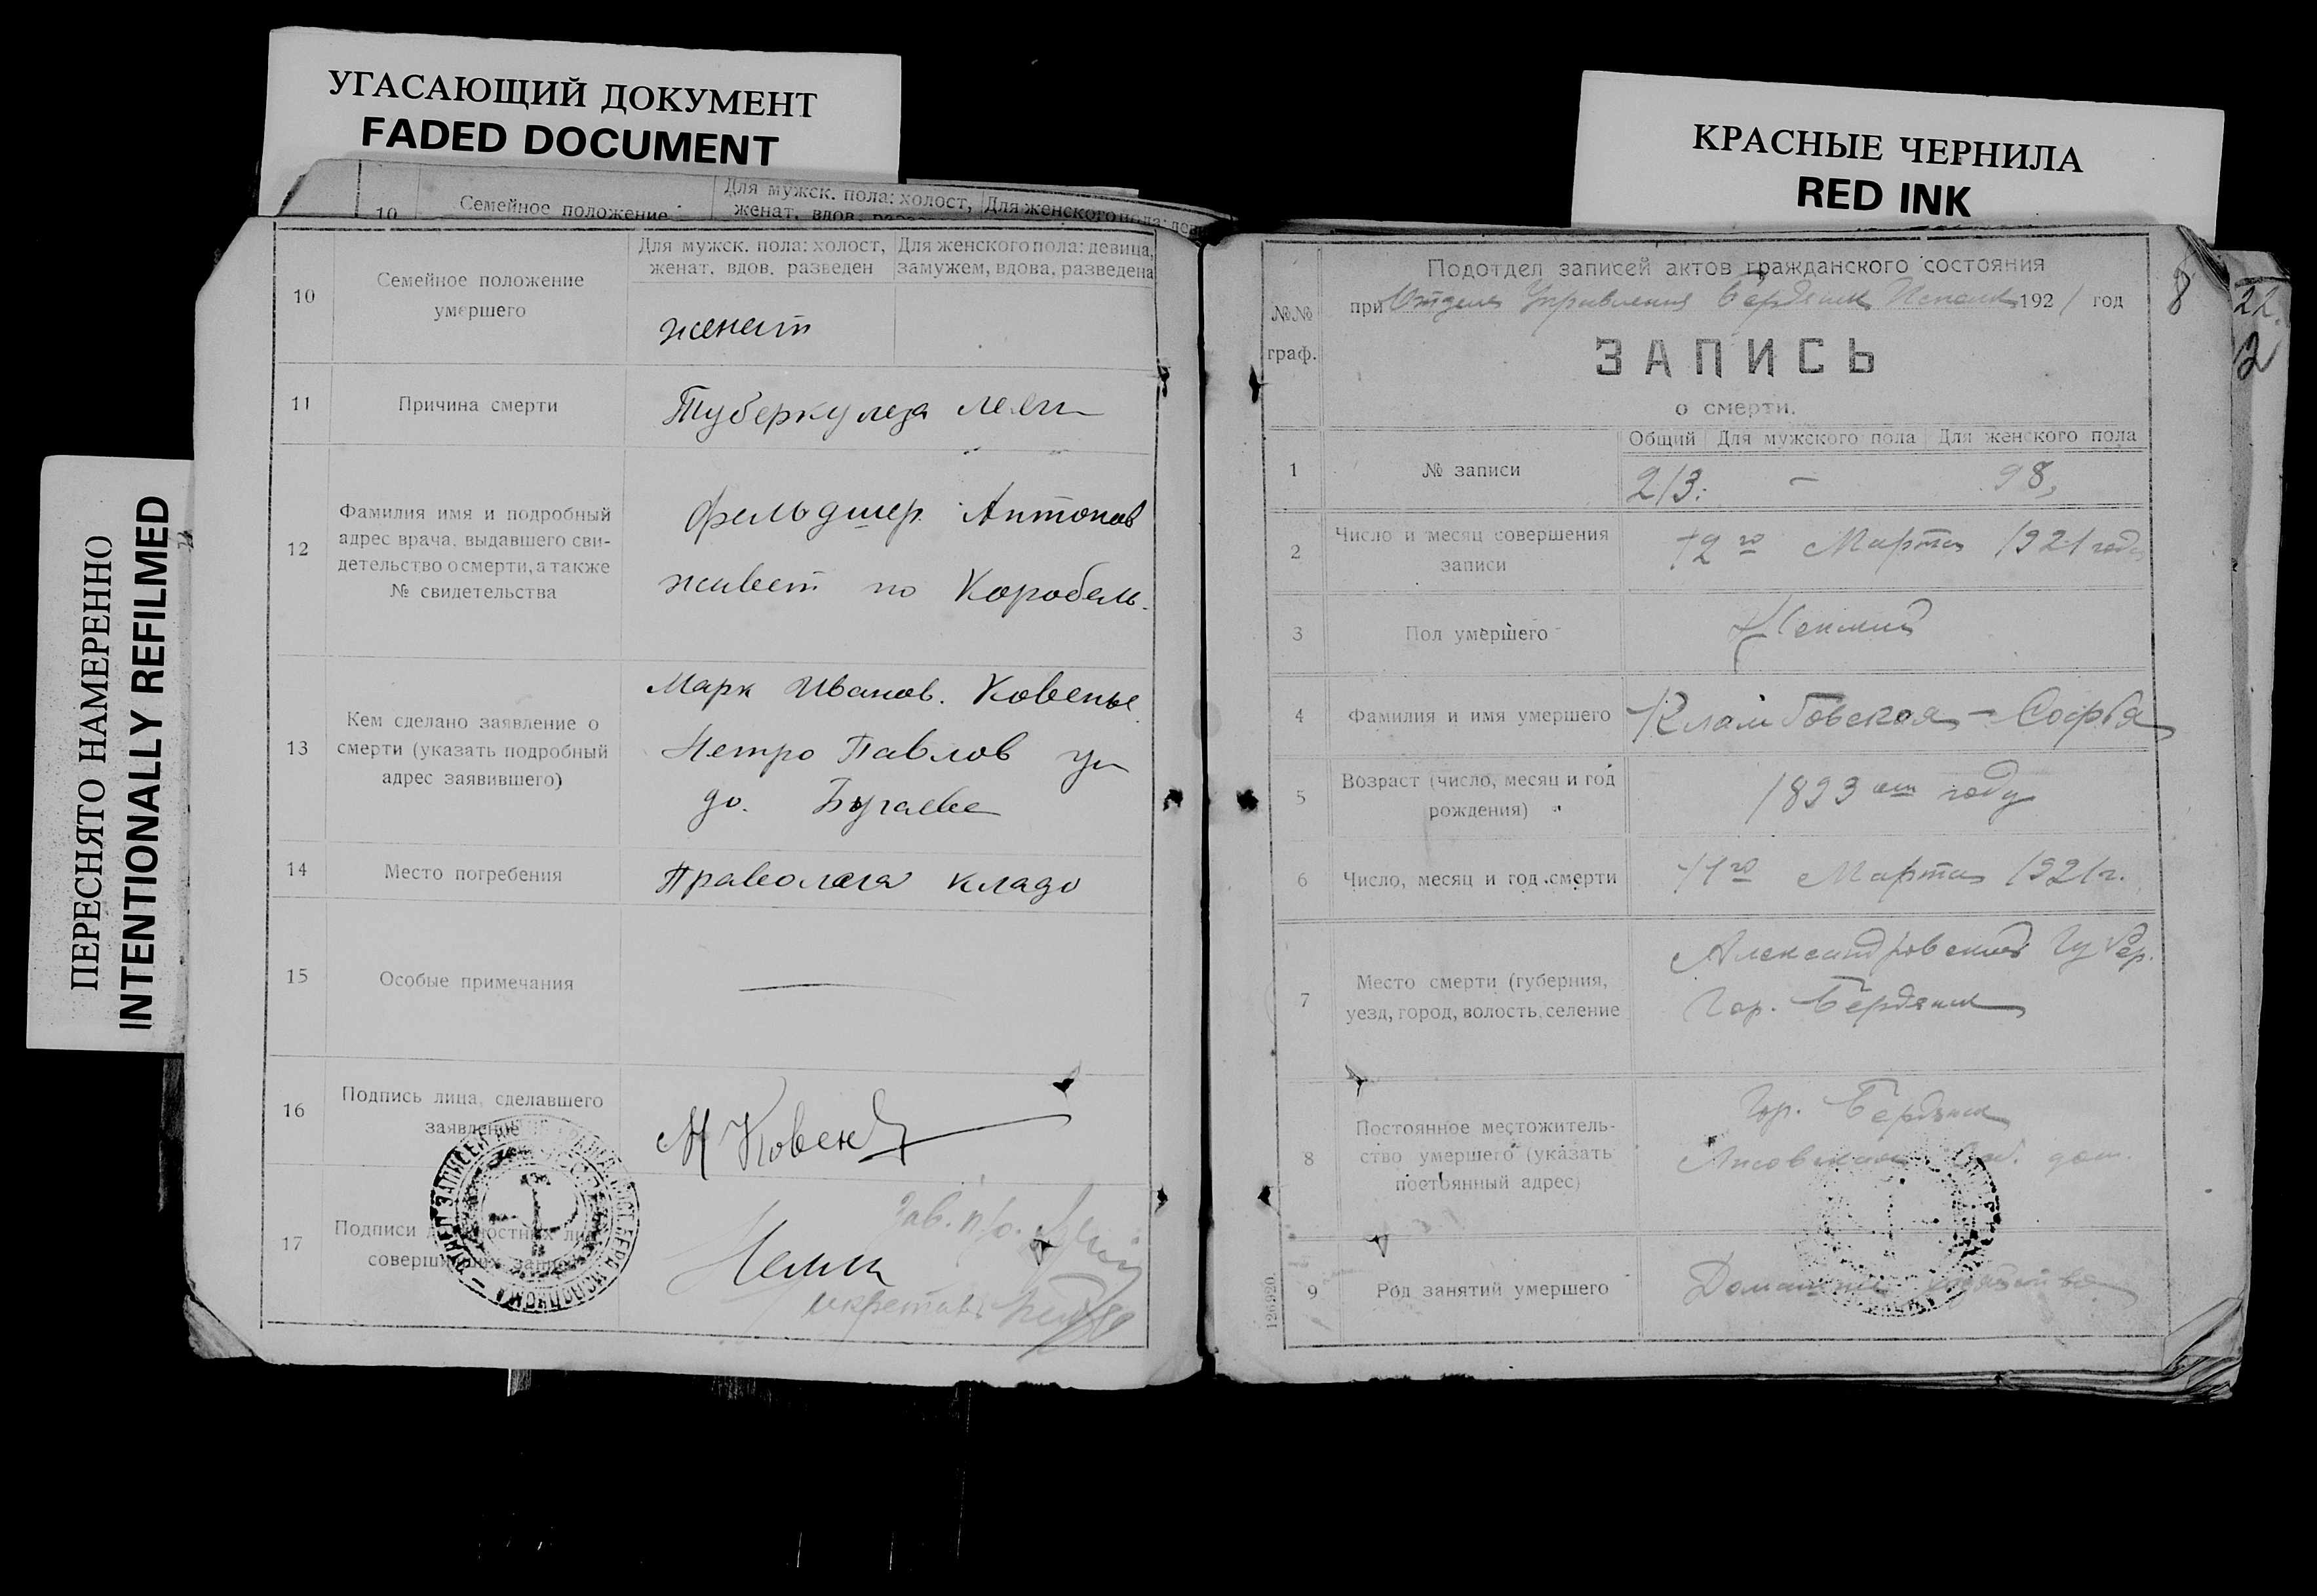 УГАСАЮЩИЙ ДОКУМЕНТ
FADED DOCUMENT
ПЕРЕСНЯТО НАМЕРЕННО
INTENTIONALLY REFILMED
10
Семейное положение
Для мужск. пола: холост,
женат, вдов,
Для женского пола:
10
Семейное положение
умершего
Для мужск. пола: холост,
женат, вдов, разведен
Для женского пола: девица,
замужем, вдова, разведена
женат
11
Причина смерти
Туберкулеза
12
Фамилия имя и подробный
адрес врача, выдавшего сви-
детельство о смерти, а также
№ свидетельства
фельдшер Антонов
живет по Коробель.
13
Кем сделано заявление о
смерти (указать подробный
адрес заявившего)
Марк Иванов.
Петро Павлов ул
до. Бугаева
14
Место погребения
кладо
15
Особые примечания
16
Подпись лица, сделавшего
заявление
М
17
Подписи должностных лиц
совершивших запись
Зав. п/о.
КРАСНЫЕ ЧЕРНИЛА
RED INK
8
22.
2
№№
граф.
Подотдел записей актов гражданского состояния
при Отделе Управления Бердянск 1921 год
ЗАПИСЬ
о смерти.
1
№ записи
Общий
Для мужского пола
Для женского пола
213. – 98,
2
Число и месяц совершения
записи
12го Марта 1921 года
3
Пол умершего
Женский
4
Фамилия и имя умершего
Софья
5
Возраст (число, месяц и год
рождения)
году
6
Число, месяц и год смерти
11го Марта 1921 г.
7
Место смерти (губерния,
уезд, город, волость, селение
Александровская Губер.
Гор. Бердянск
8
Постоянное местожитель-
ство умершего (указать
постоянный адрес)
Гор. Бердянск
дом.
9
Род занятий умершего
Домашнее хозяйство
126920.